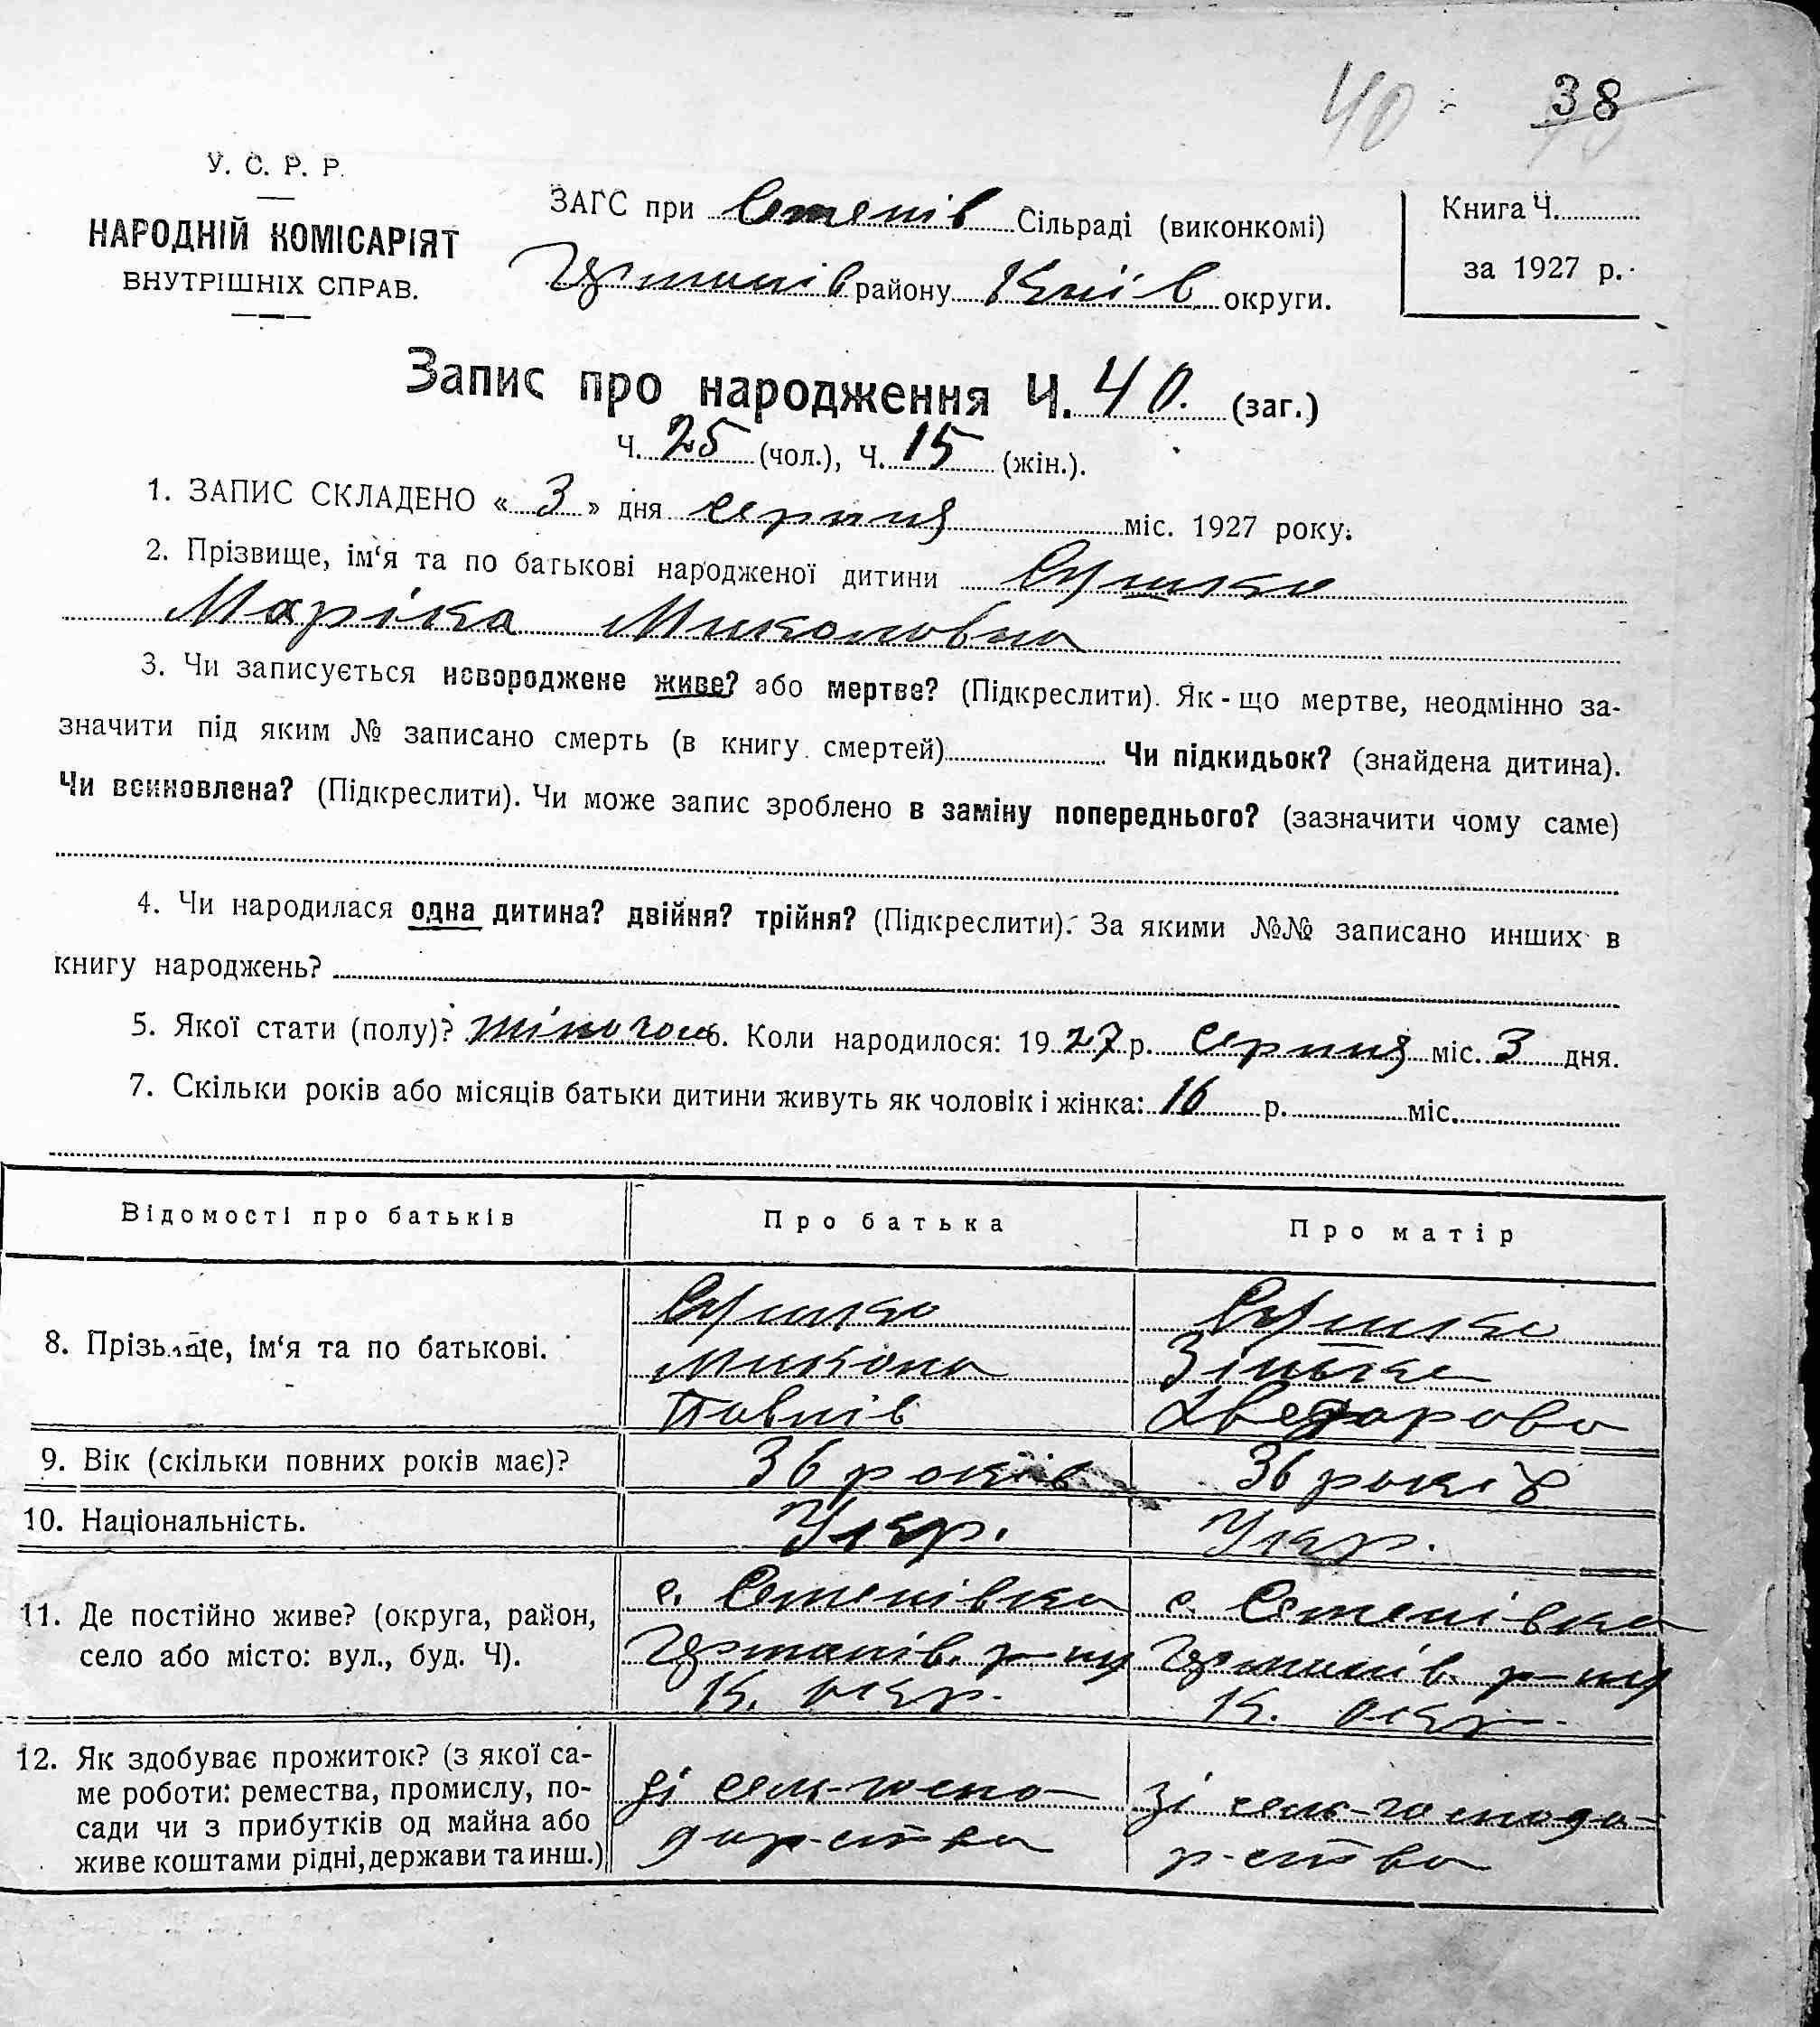 40 38
У. С. Р. Р.
НАРОДНІЙ КОМІСАРІЯТ
ВНУТРІШНІХ СПРАВ.
ЗАГС при Степів Сільраді (виконкомі)
району Київ округи.
Книга Ч.
за 1927 р.
Запис про народження Ч. 40. (заг.)
Ч. 25 (чол.), Ч. 15 (жін.).
1. ЗАПИС СКЛАДЕНО « 3 » дня серпня міс. 1927 року.
2. Прізвище, ім'я та по батькові народженої дитини Сушко
Марійка Миколовна
3. Чи записується новороджене живе? або мертве? (Підкреслити). Як-що мертве, неодмінно за-
значити під яким № записано смерть (в книгу смертей) Чи підкидьок? (знайдена дитина).
Чи всиновлена? (Підкреслити). Чи може запис зроблено в заміну попереднього? (зазначити чому саме)
4. Чи народилася одна дитина? двійня? трійня? (Підкреслити). За якими №№ записано инших в
книгу народжень?
5. Якої стати (полу)? жіночої 6. Коли народилося: 1927 р. серпня міс. 3 дня.
7. Скільки років або місяців батьки дитини живуть як чоловік і жінка: 16 р. міс.
Відомості про батьків Про батька Про матір
8. Прізвище, ім'я та по батькові. Сушко Сушко
Микола Зінька
Павлів
9. Вік (скільки повних років має)? 36 років 36 років
10. Національність. Укр. Укр.
11. Де постійно живе? (округа, район, с. Степівка с. Степівка
село або місто: вул., буд. Ч). р-ну р-ну
К. окр. К. окр.
12. Як здобуває прожиток? (з якої са-
ме роботи: ремества, промислу, по- зі сель-госпо- зі сель-господа-
сади чи з прибутків од майна або
живе коштами рідні, держави та инш.) дарства р-ства